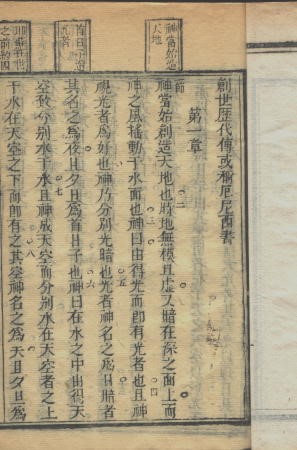 神當始造
天地
耶穌降世
之前約四
創世歷代傳或稱厄尼西書
第一章
節
神當始創造天地也二時地無模且虛又暗在深之面上而
神之風搖動于水面也三神曰由得光而即有光者也四且神
視光者爲好也神乃分別光暗也五光者神名之爲日暗者
其名之爲夜且夕旦爲首日子也六神曰在水之中由得天
空致分別水于水七且神成天空而分別水在天空者之上
于水在天空之下而即有之八其空神名之爲天且夕旦爲